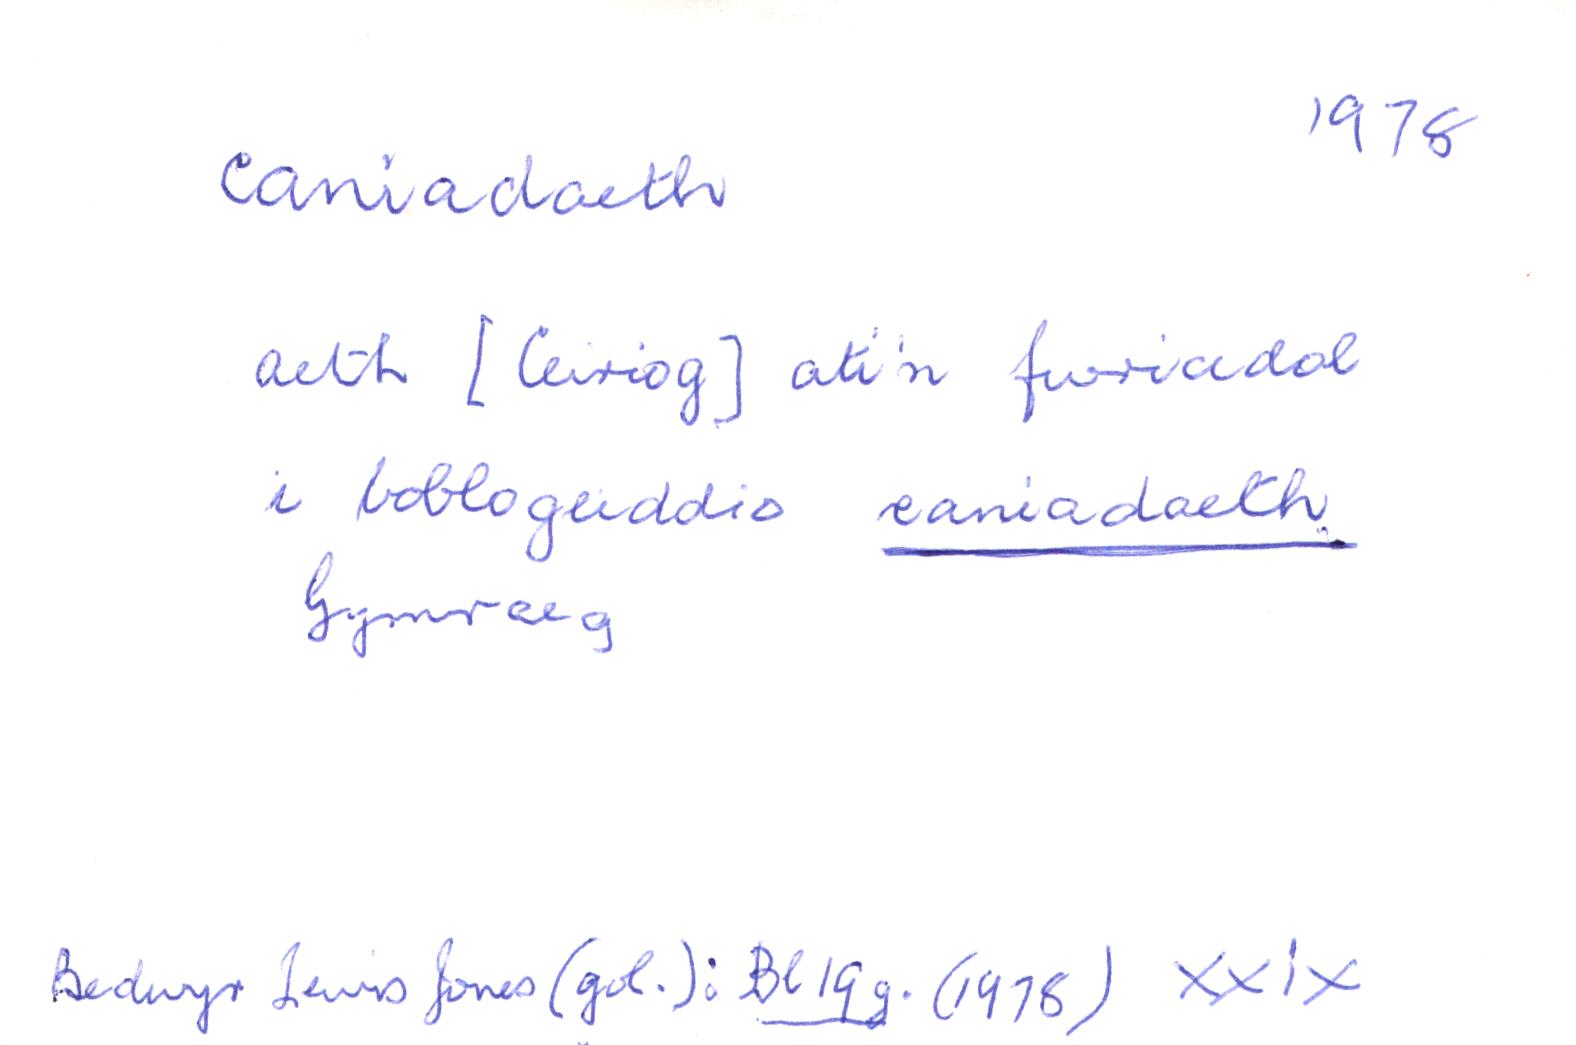 1978
caniadaeth
aeth [Ceiriog] ati'n fwriadol
i boblogeiddio caniadaeth
Gymraeg
Bedwyr Lewis Jones (gol.): Bl 19g. (1978) xxix